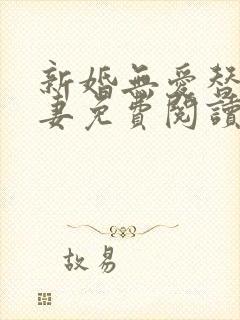 新婚無愛替
妻免費閱讀
故易